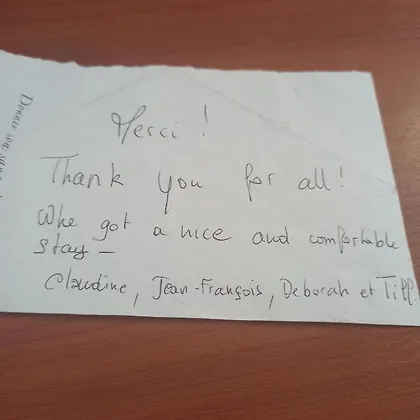 Merci !
Thank you for all !
Whe got a nice and comfortable
stay –
Claudine, Jean-François, Deborah et Till.